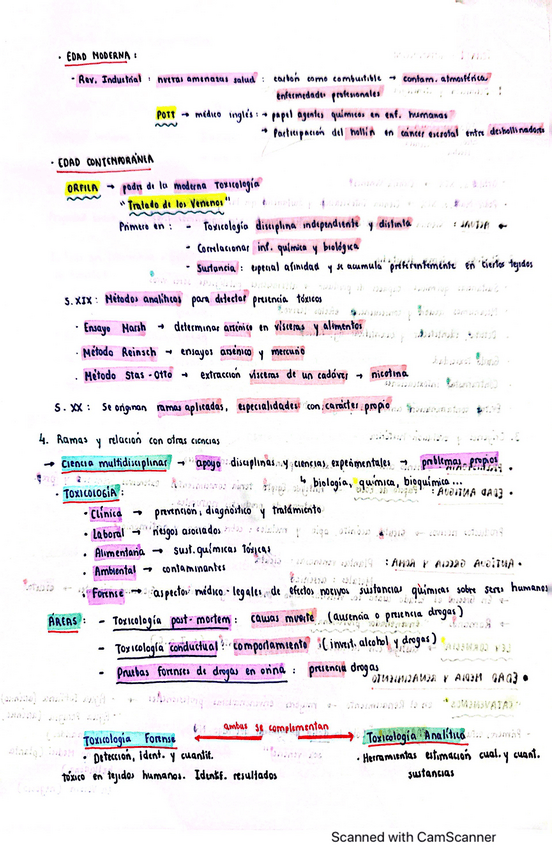 · EDAD MODERNA:
- Rev. Industrial : nuevas amenazas salud : carbón como combustible → contam. atmosférica
enfermedades profesionales
POTT → médico inglés: → papel agentes químicos en enf. humanas
→ Participación del hollín en cáncer escrotal entre deshollinadores
· EDAD CONTEMPORÁNIA
ORFILA → padre de la moderna Toxicología
"Tratado de los Venenos"
Primero en : - Toxicología disciplina independiente y distinta
- Correlacionar inf. química y biológica
- Sustancia : especial afinidad y se acumula preferentemente en ciertos tejidos
S. XIX : Métodos analíticos para detectar presencia tóxicos
· Ensayo Marsh → determinar arsénico en vísceras y alimentos
· Método Reinsch → ensayos arsénico y mercurio
· Método Stas-Otto → extracción vísceras de un cadáver → nicotina
S. XX : Se originan ramas aplicadas, especialidades con carácter propio
4. Ramas y relación con otras ciencias
→ Ciencia multidisciplinar → apoyo disciplinas y ciencias experimentales → problemas propios
↳ biología, química, bioquímica...
· TOXICOLOGÍA :
· Clínica → prevención, diagnóstico y tratamiento
· Laboral → riesgos asociados
· Alimentaria → sust. químicas tóxicas
· Ambiental → contaminantes
· Forense → aspectos médico-legales de efectos nocivos sustancias químicas sobre seres humanos
ÁREAS : - Toxicología post-mortem : causas muerte (ausencia o presencia drogas)
- Toxicología conductual : comportamiento (invest. alcohol y drogas)
- Pruebas forenses de drogas en orina : presencia drogas
ambas se complementan
Toxicología Forense ↔ Toxicología Analítica
· Detección, ident. y cuantif.
tóxico en tejidos humanos. Identif. resultados
· Herramientas estimación cual. y cuant.
sustancias
Scanned with CamScanner